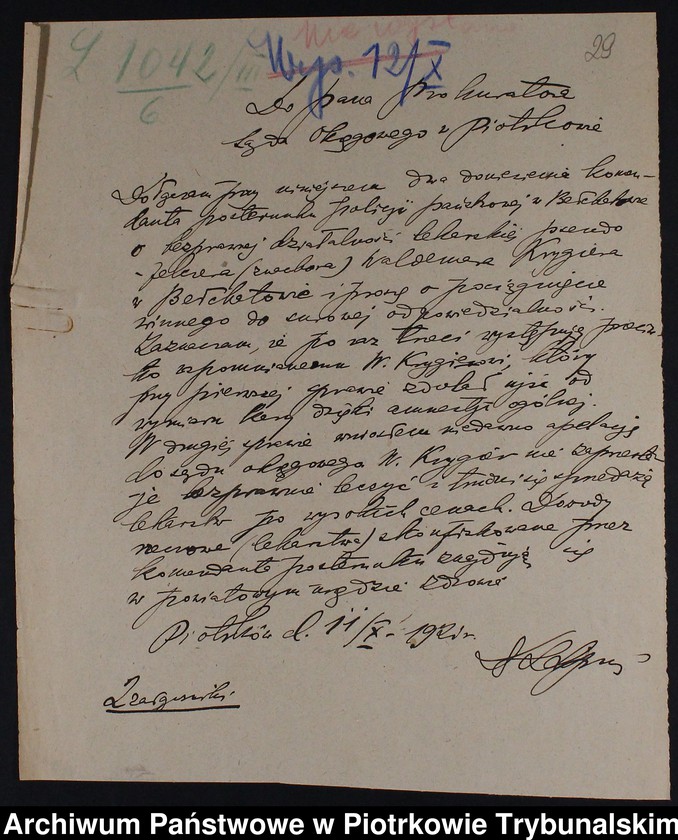 L 1042/III
6
Wys. 12/X
29
Do pana Prokuratora
Sądu Okręgowego w Piotrkowie
Dołączam przy niniejszem dwa doniesienia komen-
danta posterunku policji państwowej w Bełchatowie
o bezprawnej działalności lekarskiej pseudo
-felczera (znachora) Waldemara Krygiera
w Bełchatowie i proszę o pociągnięcie
winnego do surowej odpowiedzialności.
Zaznaczam, że po raz trzeci występuję przeciw-
ko wspomnianemu W. Krygierowi, który
przy pierwszej sprawie zdołał ujść od
wymiaru kary dzięki amnestji ogólnej.
W drugiej sprawie wniosłem niedawno apelację
do sądu okręgowego W. Krygier nie zaprzesta-
je bezprawnie leczyć i trudni się sprzedażą
lekarstw po wysokich cenach. Dowody
rzeczowe (lekarstwa) skonfiskowane przez
komendanta posterunku znajdują się
w powiatowym urzędzie zdrowia
Piotrków d. 11/X - 1921 r.
2 załączniki.
Archiwum Państwowe w Piotrkowie Trybunalskim